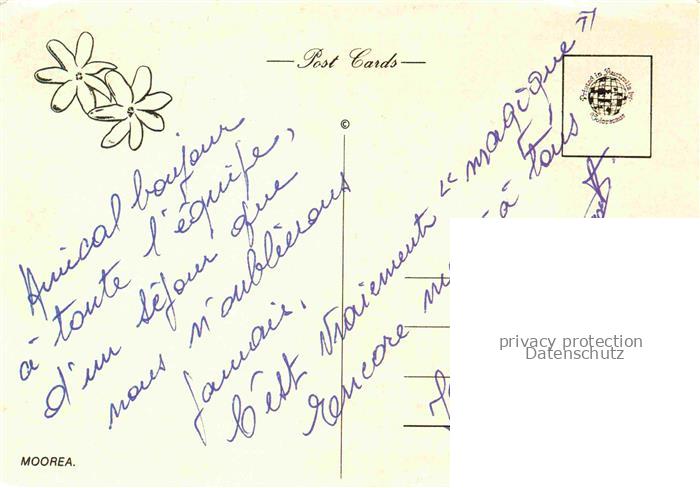 Post Cards
Printed in Australia by
©
Amical bonjour
à toute l'équipe,
d'un séjour que
nous n'oublierons
jamais.
C'est vraiment "magique"!
Encore à tous
MOOREA.
privacy protection
Datenschutz